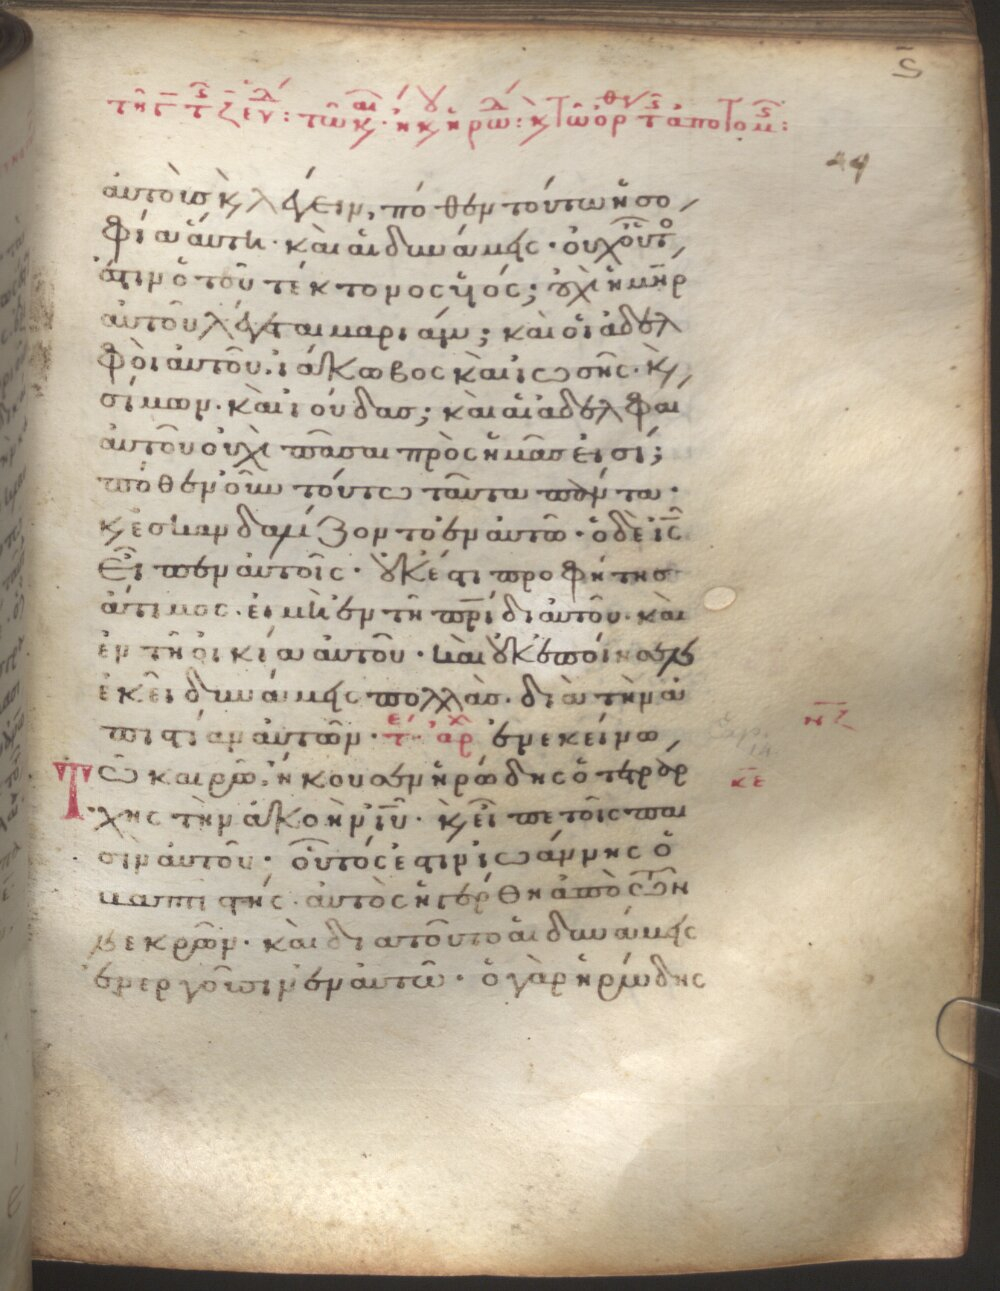 ϛ
τῇ γ τ ζ ἑβδ λ: τῶ κ · ἤκ ἡρώ: κ τῶ ὄρθ τ ἀποτομ:
44
αὐτοῖς κ λέγειν, πόθεν τούτω ἡ σο
φία αὕτη · καὶ αἱ δυνάμεις · οὐχ οὗτο
ἐστιν ὁ τοῦ τέκτονος υἱός; οὐχὶ ἡ μηρ
αὐτοῦ λέγεται μαριάμ; καὶ οἱ ἀδελ
φοὶ αὐτοῦ ἰάκωβος καὶ ἰωσῆς · κ
σίμων · καὶ ἰούδας; καὶ αἱ ἀδελφαι
αὐτοῦ οὐχὶ πᾶσαι πρὸς ἡμᾶς εἰσί;
πόθεν οὖν τούτω ταῦτα πάντα ·
κ ἐσκανδαλίζοντο ἐν αὐτῶ · ὁ δὲ ις
εἶπεν αὐτοῖς · οὐκ ἔστι προφήτης
ἄτιμος · εἰ μὴ ἐν τῆ πρίδι αὐτοῦ · καὶ
ἐν τῆ οἰκία αὐτοῦ · καὶ οὐκ ἐποίησεν
ἐκεῖ δυνάμεις πολλὰς · διὰ τὴν ἀ
πιστίαν αὐτῶν · τε · ἀρχ ἐν ἐκείνω
νζ
Τῶ καιρῶ, ἤκουσεν ἡρώδης ὁ τετράρ
κε
χης τὴν ἀκοὴν ιυ · κ εἶπε τοῖς παι
σὶν αὐτοῦ · οὗτός ἐστιν ἰωάννης ὁ
βαπτιστής · αὐτὸς ἠγέρθη ἀπὸ τῶν
νεκρῶν · καὶ διατοῦτο αἱ δυνάμεις
ἐνεργοῦσιν ἐν αὐτῶ · ὁ γὰρ ἡρώδης